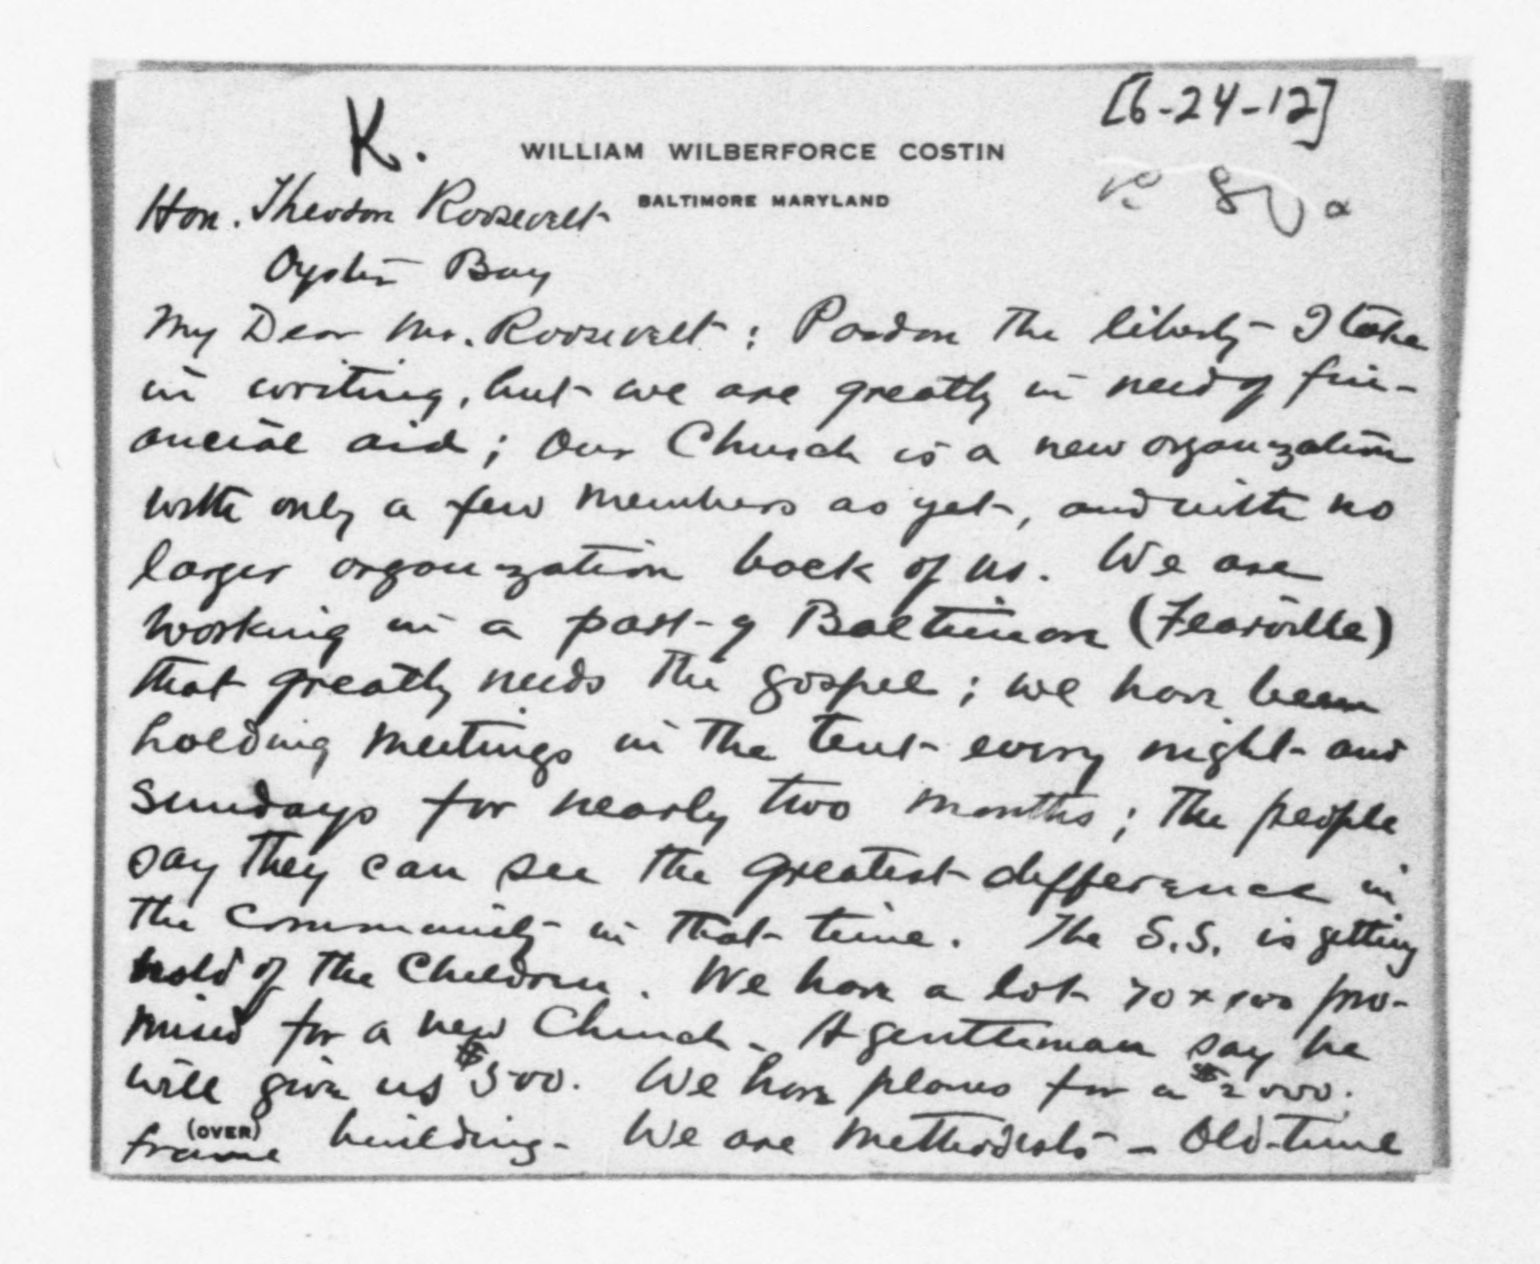 K.
[6-24-12]
WILLIAM WILBERFORCE COSTIN
BALTIMORE MARYLAND
Hon. Theodore Roosevelt
Oyster Bay
My Dear Mr. Roosevelt: Pardon the liberty I take
in writing, but we are greatly in need of fin-
ancial aid; Our Church is a new organization
with only a few members as yet, and with no
larger organization back of us. We are
working in a part of Baltimore ()
that greatly needs the gospel; we have been
holding meetings in the tent every night and
Sundays for nearly two months; the people
say they can see the greatest difference in
the community in that time. The S.S. is getting
hold of the children. We have a lot 70 x 100 pro-
mised for a new Church. A gentleman say he
will give us $500. We have plans for a $2000.
frame building. We are Methodists - Old-time
(OVER)